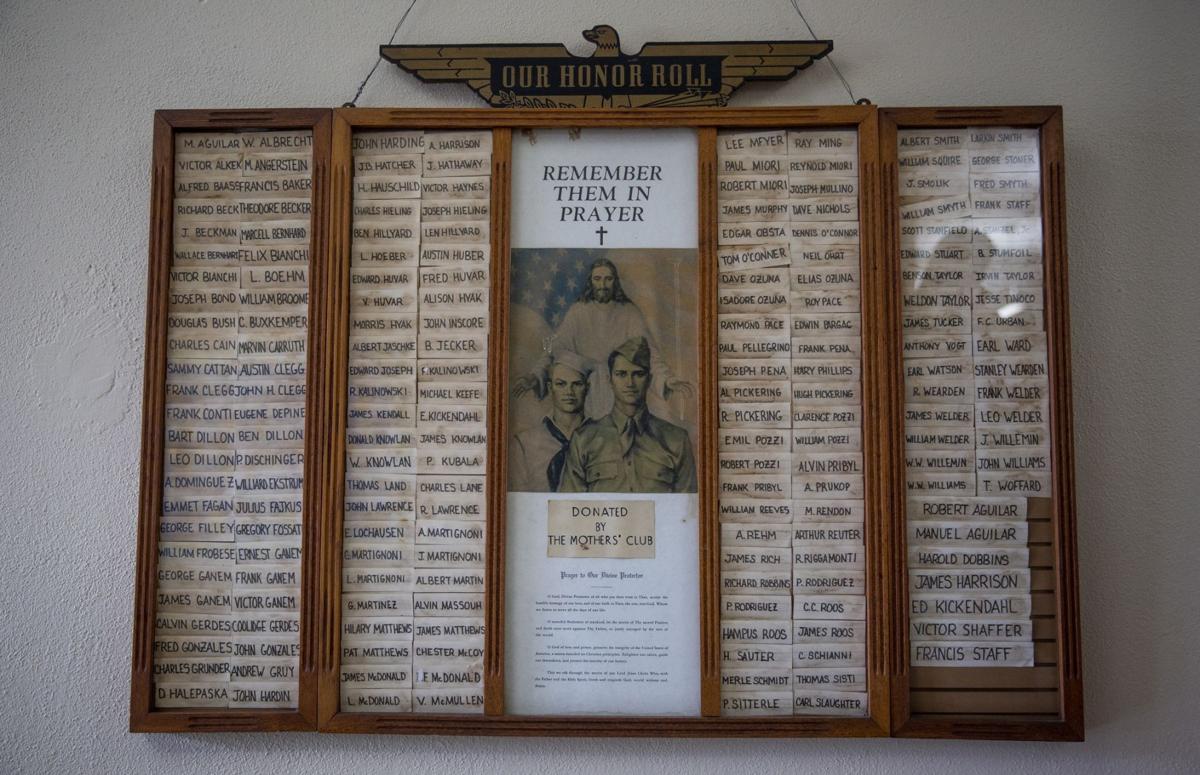 OUR HONOR ROLL
M. AGUILAR W. ALBRECHT
VICTOR ALKEK M. ANGERSTEIN
ALFRED BIASS FRANCIS BAKER
RICHARD BECK THEODORE BECKER
J. BECKMAN MARCELL BERNHARD
WALLACE BERNHARD FELIX BIANCHI
VICTOR BIANCHI L. BOEHM
JOSEPH BOND WILLIAM BROOME
DOUGLAS BUSH C. BUXKEMPER
CHARLES CAIN MARVIN CARRUTH
SAMMY CATTAN AUSTIN CLEGG
FRANK CLEGG JOHN H. CLEGG
FRANK CONTI EUGENE DEPINE
BART DILLON BEN DILLON
LEO DILLON P. DISCHINGER
A. DOMINGUEZ WILLIARD EKSTRUM
EMMET FAGAN JULIUS FAJKUS
GEORGE FILLEY GREGORY FOSSATI
WILLIAM FROBESE ERNEST GANEM
GEORGE GANEM FRANK GANEM
JAMES GANEM VICTOR GANEM
CALVIN GERDES COOLIDGE GERDES
FRED GONZALES JOHN GONZALES
CHARLES GRUNDER ANDREW GRUY
D HALEPASKA JOHN HARDIN
JOHN HARDING A. HARRISON
J.B. HATCHER J. HATHAWAY
H. HAUSCHILD VICTOR HAYNES
CHARLES HIELING JOSEPH HIELING
BEN HILLYARD LEN HILLYARD
L. HOEBER AUSTIN HUBER
EDWARD HUVAR FRED HUVAR
V. HUVAR ALISON HYAK
MORRIS HYAK JOHN INSCORE
ALBERT JASCHKE B. JECKER
EDWARD JOSEPH F. KALINOWSKI
R. KALINOWSKI MICHAEL KEEFE
JAMES KENDALL E. KICKENDAHL
DONALD KNOWLAN JAMES KNOWLAN
W. KNOWLAN P. KUBALA
THOMAS LAND CHARLES LANE
JOHN LAWRENCE R. LAWRENCE
E. LOCHAUSEN A. MARTIGNONI
G. MARTIGNONI J. MARTIGNONI
L. MARTIGNONI ALBERT MARTIN
G. MARTINEZ ALVIN MASSOUH
HILARY MATTHEWS JAMES MATTHEWS
PAT MATTHEWS CHESTER McCOY
JAMES McDONALD McDONALD
L. McDONALD V. McMULLEN
REMEMBER
THEM IN
PRAYER
DONATED
BY
THE MOTHERS' CLUB
Prayer to Our Divine Protector
LEE MEYER RAY MING
PAUL MIORI REYNOLD MIORI
ROBERT MIORI JOSEPH MULLINO
JAMES MURPHY DAVE NICHOLS
EDGAR OBSTA DENNIS O'CONNOR
TOM O'CONNER NEIL OURT
DAVE OZUNA ELIAS OZUNA
ISADORE OZUNA ROY PACE
RAYMOND PACE EDWIN PARGAC
PAUL PELLEGRINO FRANK PENA
JOSEPH PENA HARY PHILLIPS
AL PICKERING HUGH PICKERING
R. PICKERING CLARENCE POZZI
EMIL POZZI WILLIAM POZZI
ROBERT POZZI ALVIN PRIBYL
FRANK PRIBYL A. PRUKOP
WILLIAM REEVES M. RENDON
A. REHM ARTHUR REUTER
JAMES RICH R. RIGGAMONTI
RICHARD ROBBINS P. RODRIGUEZ
P. RODRIGUEZ C.C. ROOS
HAMPUS ROOS JAMES ROOS
H. SAUTER C. SCHIANNI
MERLE SCHMIDT THOMAS SISTI
P. SITTERLE CARL SLAUGHTER
ALBERT SMITH LARKIN SMITH
WILLIAM SQUIRE GEORGE STONER
J. SMOLIK FRED SMYTH
WILLIAM SMYTH FRANK STAFF
SCOTT STANFIELD
EDWARD STUART B. STUMFOLL
BENSON TAYLOR IRVIN TAYLOR
WELDON TAYLOR JESSE TINOCO
JAMES TUCKER F.C. URBAN
ANTHONY VOGT EARL WARD
EARL WATSON STANLEY WEARDEN
R. WEARDEN FRANK WELDER
JAMES WELDER LEO WELDER
WILLIAM WELDER J. WILLEMIN
W.W. WILLEMIN JOHN WILLIAMS
W.W. WILLIAMS T. WOFFARD
ROBERT AGUILAR
MANUEL AGUILAR
HAROLD DOBBINS
JAMES HARRISON
ED KICKENDAHL
VICTOR SHAFFER
FRANCIS STAFF